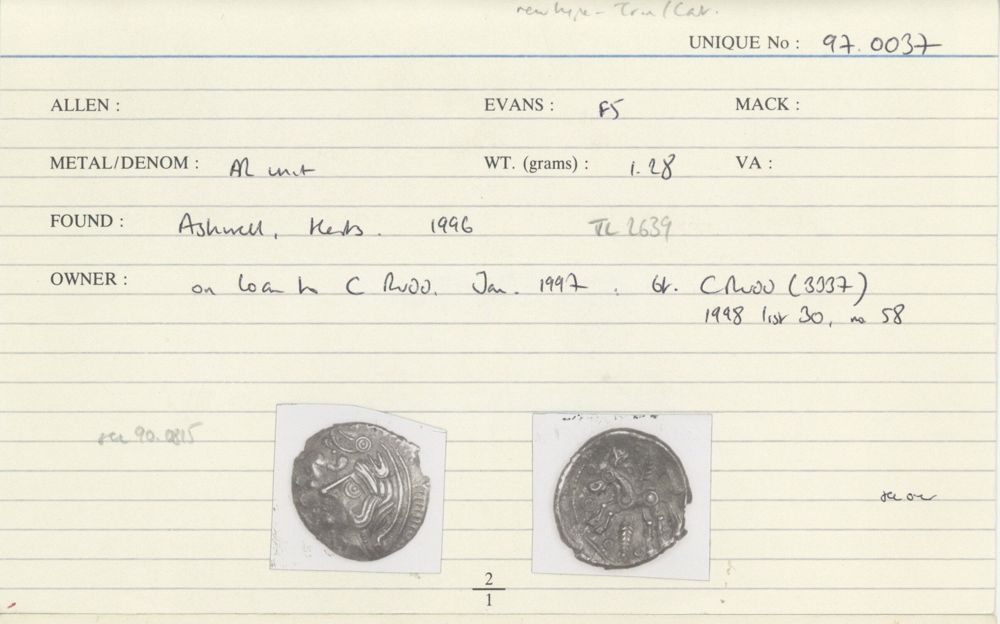 new type - Trin/Cat.
UNIQUE No : 97.0037
ALLEN : EVANS : F5 MACK :
METAL/DENOM : AR unit WT. (grams) : 1.28 VA :
FOUND : Ashwell, Herts. 1996 TL 2639
OWNER : on loan to C RUDD, Jan. 1997. bt. C RUDD (3337)
1998 list 30, no 58
see 90.0815
see over
2
1